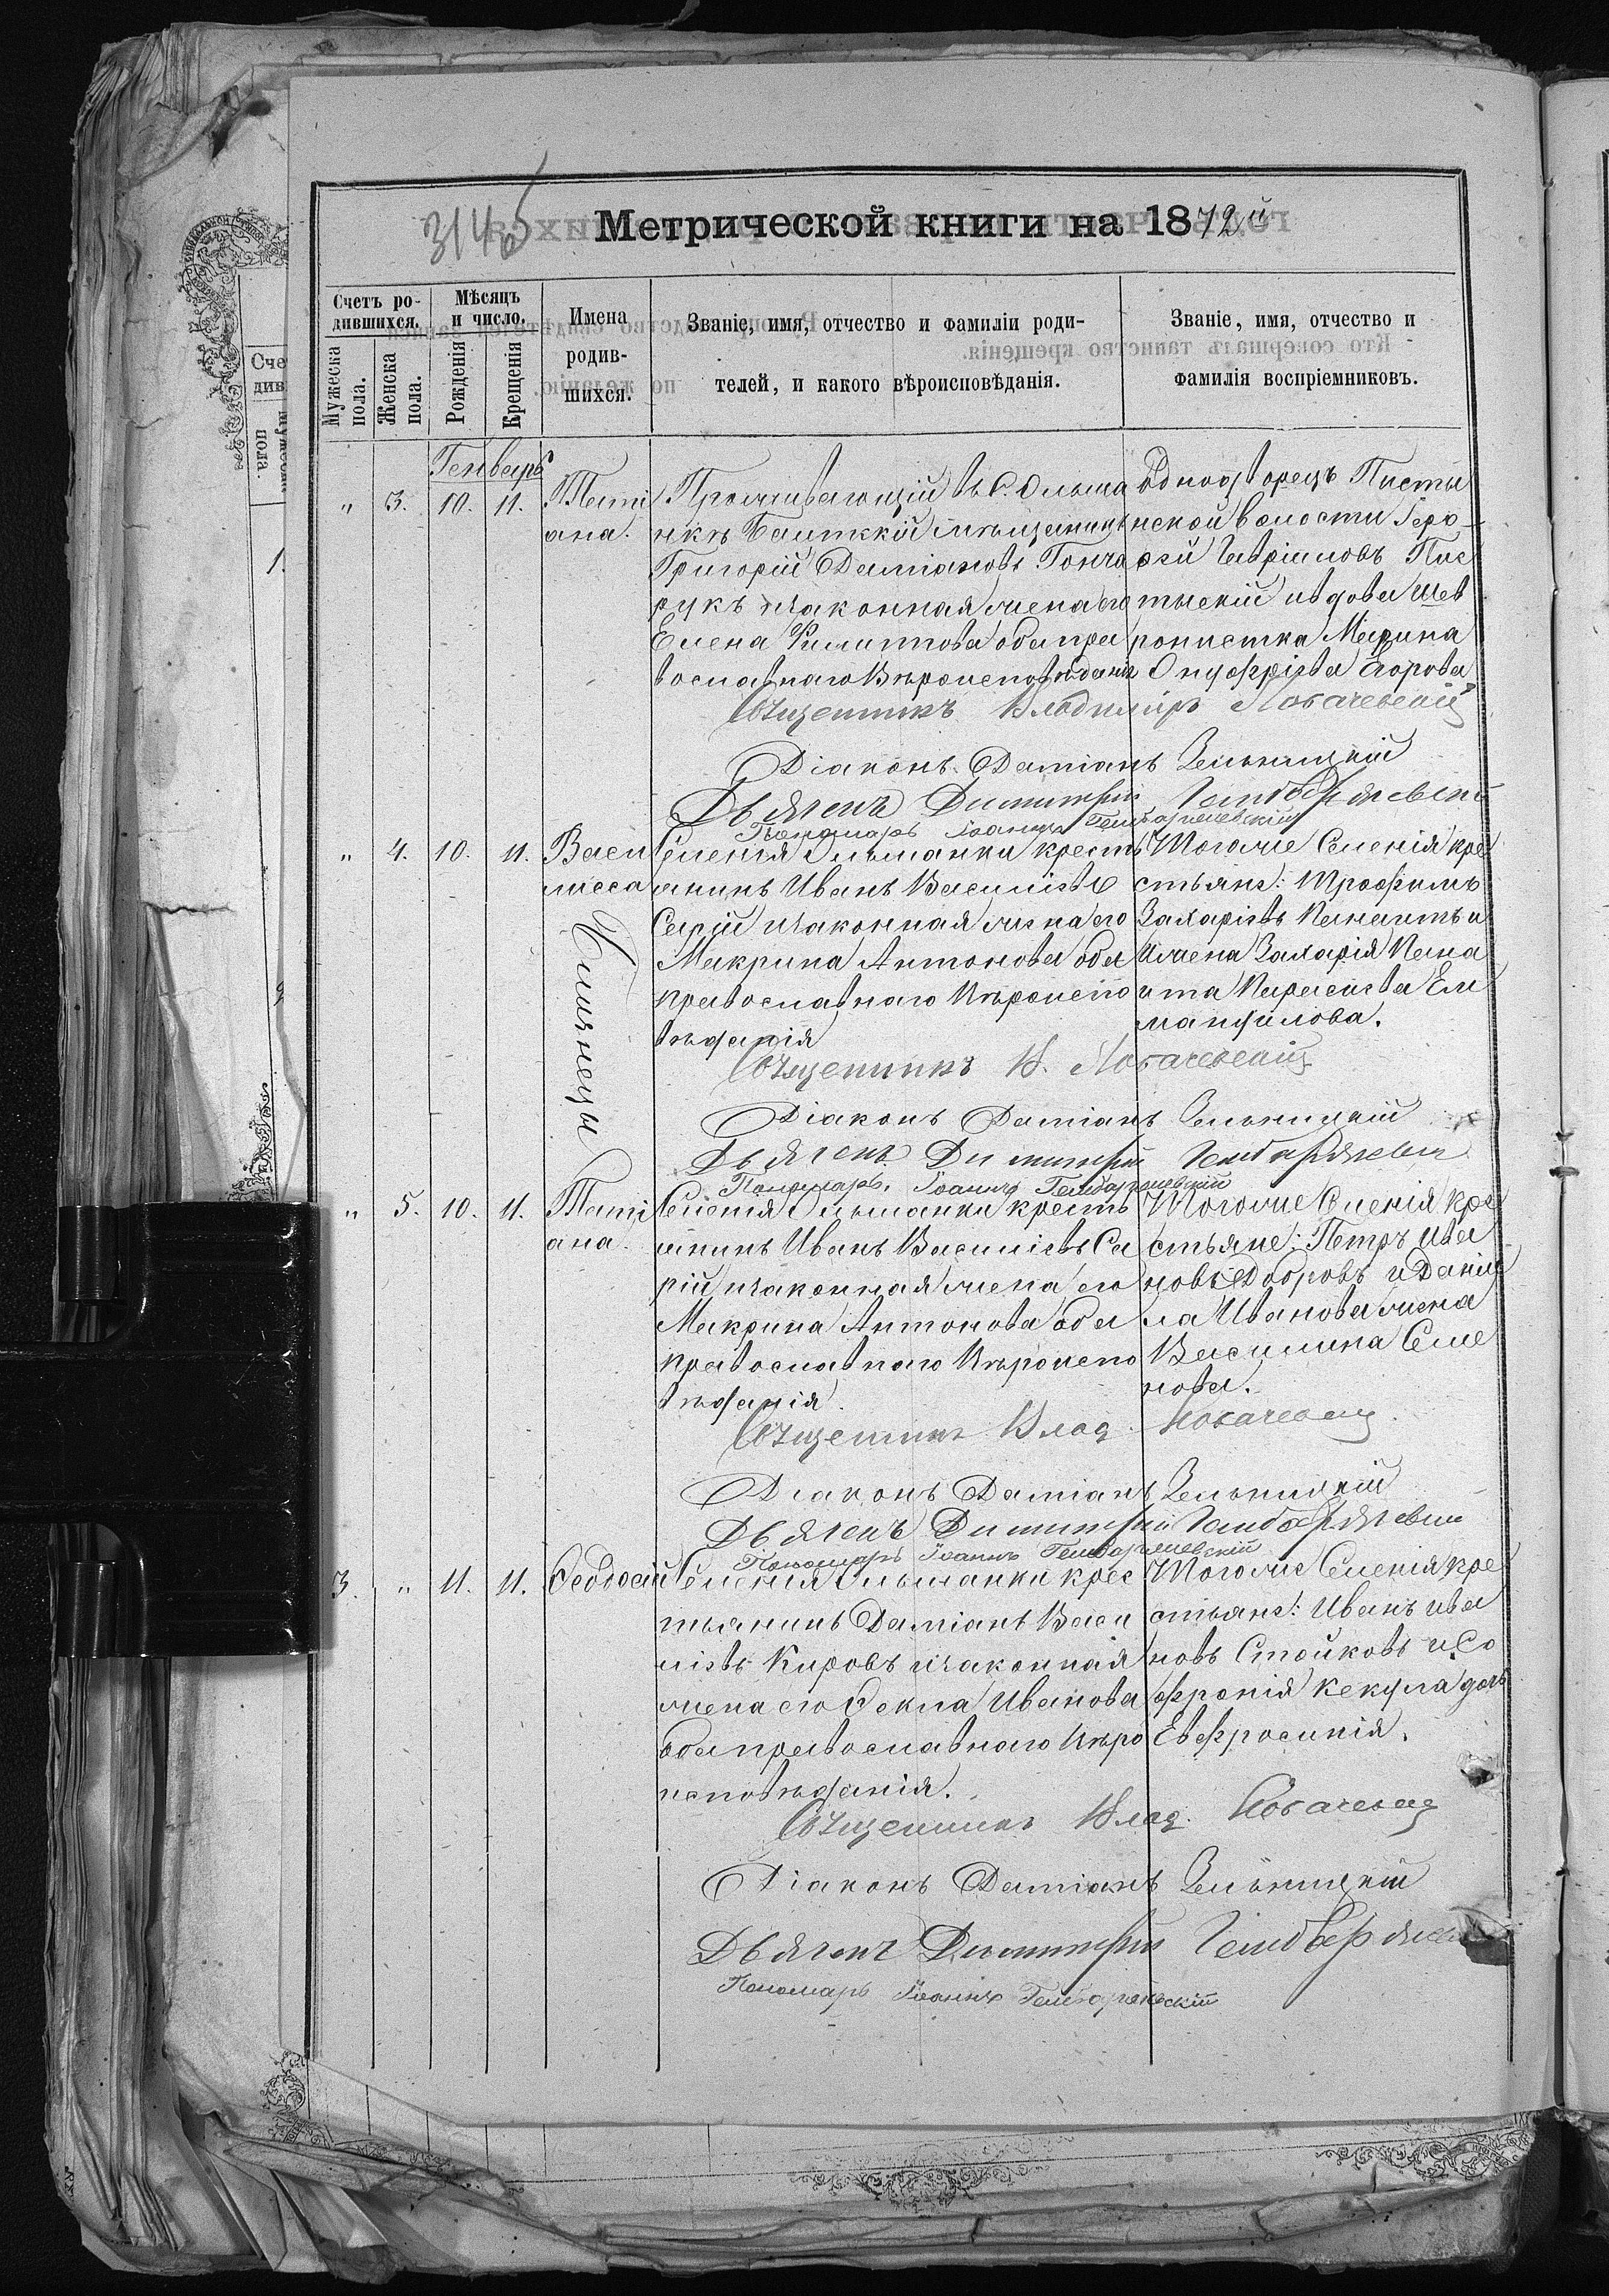 Метрической книги на 1872 й
Счетъ ро-
дившихся.
Мужеска пола.
Женска пола.
Мѣсяцъ
и число.
Рожденія
Крещенія
Имена
родив-
шихся.
Званіе, имя, отчество и фамиліи роди-
телей, и какого вѣроисповѣданія.
Званіе, имя, отчество и
фамилія воспріемниковъ.
Генварь
" 3. 10. 11. Тати
ана.
Проживающій въ С. Ольша
нкѣ мѣщанинъ
Григорій Даміановъ Гонча
рукъ и законная жена его
Елена Филиппова оба пра
вославнаго Вѣроисповѣданія
Однодворецъ
волости
вдова
Марина
Онуфріева
Священникъ Владиміръ Лобачевскій
Діаконъ Даміанъ
Дьячекъ Димитрій
Пономарь Іоаннъ
" 4. 10. 11. Васи
лисса
Близнецы
Селенія Ольшанки кресть
янинъ Иванъ Василіевъ
Сарій и законная жена его
Макрина Антонова оба
православнаго Вѣроиспо
вѣданія
Тогоже Селенія кре
стьяне: Трофимъ
Захаріевъ и
жена Захарія
Параскева Ем
мануилова.
Священникъ В. Лобачевскій
Діаконъ Даміанъ
Дьячекъ Димитрій
Пономарь Іоаннъ
" 5. 10. 11. Тати
ана.
Селенія Ольшанки кресть
янинъ Иванъ Василіевъ Са
рій и законная жена его
Макрина Антонова оба
православнаго Вѣроиспо
вѣданія.
Тогоже Селенія кре
стьяне: Петръ Ива
новъ Добровъ и Дані
ла Иванова жена
Василина Семе
нова.
Священникъ Влад. Лобачевскій
Діаконъ Даміанъ
Дьячекъ Димитрій
Пономарь Іоаннъ
3. " 11. 11. Феодосій
Селенія Ольшанки крес
тьянинъ Даміанъ Васи
ліевъ Кировъ и законная
жена его Фекла Иванова
оба православнаго Вѣро
исповѣданія.
Тогоже Селенія кре
стьяне: Иванъ Ива
новъ Стойковъ и Со
фронія Кекула дочь
Евфросинія.
Священникъ Влад. Лобачевскій
Діаконъ Даміанъ
Дьячекъ Димитрій
Пономарь Іоаннъ